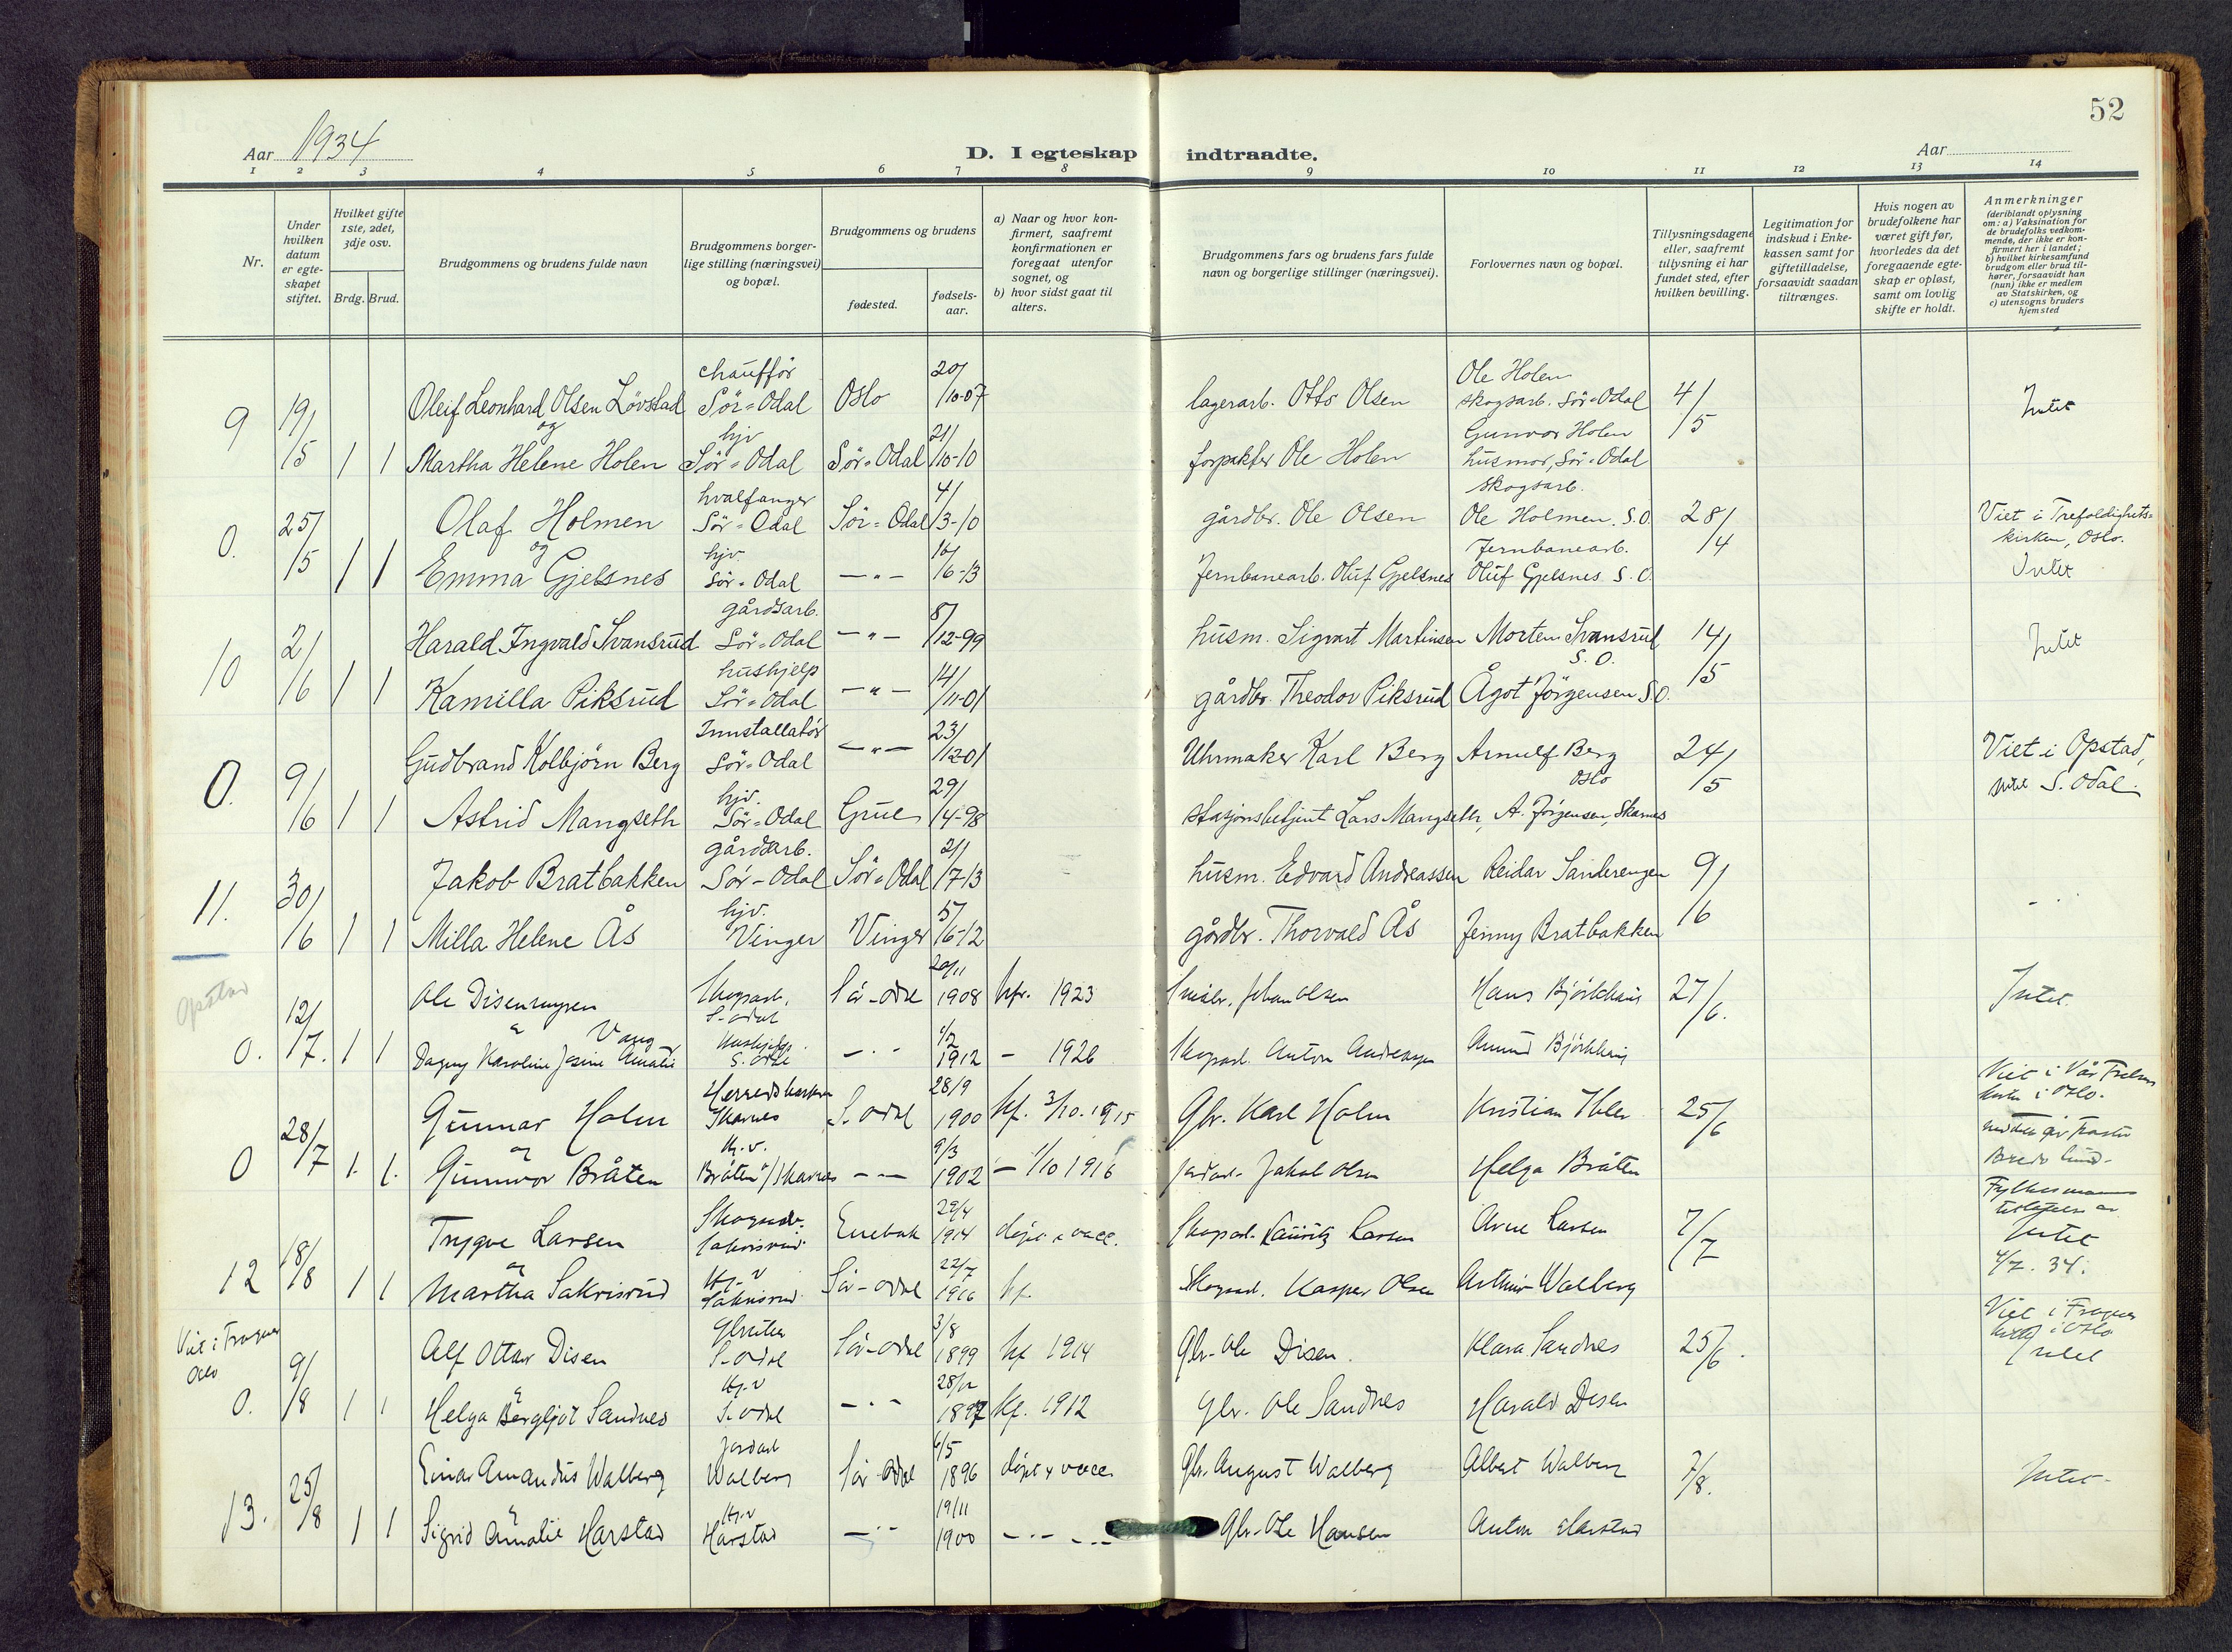 52
Aar 1934
D. I egteskap indtraadte.
Aar
1 2 3 4 5 6 7 8 9 10 11 12 13 14
Nr.
Under hvilken datum er egteskapet stiftet.
Hvilket gifte 1ste, 2det, 3dje osv.
Brdg. Brud.
Brudgommens og brudens fulde navn
Brudgommens borgerlige stilling (næringsvei) og bopæl.
Brudgommens og brudens
fødested.
fødselsaar.
a) Naar og hvor konfirmert, saafremt konfirmationen er foregaat utenfor sognet, og
b) hvor sidst gaat til alters.
Brudgommens fars og brudens fars fulde navn og borgerlige stillinger (næringsvei).
Forlovernes navn og bopæl.
Tillysningsdagene eller, saafremt tillysning ei har fundet sted, efter hvilken bevilling.
Legitimation for indskud i Enkekassen samt for giftetilladelse, forsaavidt saadan tiltrænges.
Hvis nogen av brudefolkene har været gift før, hvorledes da det foregaaende egteskap er opløst, samt om lovlig skifte er holdt.
Anmerkninger
(deriblandt oplysning om: a) Vaksination for de brudefolks vedkommende, der ikke er konfirmert her i landet; b) hvilket kirkesamfund brudgom eller brud tilhører, forsaavidt han (hun) ikke er medlem av Statskirken, og c) utensogns bruders hjemsted
9 19/5 Oleif Leonhard Olsen Lövstad chaufför Sör-Odal Oslo 20/10-07 lagerarb. Otto Olsen Ole Holen skogsarb. Sör-Odal 4/5 Intet
og
1 1 Martha Helene Holen hjv Sör-Odal Sör-Odal 21/10-10 forpakter Ole Holen Gunvor Holen husmor, Sör-Odal
0. 25/5 Olaf Holmen hvalfanger Sör-Odal Sör-Odal 4/3-10 gårdbr. Ole Olsen skogsarb. Ole Holmen. S.O. 28/4 Viet i Trefoldighetskirken, Oslo.
og
1 1 Emma Gjelsnes hjv. Sör-Odal -"- 16/6-13 Jernbanearb. Oluf Gjelsnes Jernbanearb. Oluf Gjelsnes S.O. Intet
10 2/6 Harald Ingvald Svansrud gårdsarb. Sör-Odal -"- 8/12-99 husm. Sigvart Martinsen Morten Svansrud S.O. 14/5 Intet
1 1 Kamilla Piksrud hushjelp Sör-Odal -"- 14/11-01 gårdbr. Theodor Piksrud Ågot Jörgensen S.O.
0. 9/6 Gudbrand Kolbjörn Berg Innstallatör Sör-Odal -"- 23/12-01 Uhrmaker Karl Berg Arnulf Berg Oslo 24/5 Viet i Opstad, S. Odal.
1 1 Astrid Mangseth hjv. Sör-Odal Grue 29/4-98 stasjonsbetjent Lars Mangseth, A. Jörgensen, Skarnes
11. 30/6 Jakob Bratbakken gårdsarb. Sör-Odal Sör-Odal 21/7-13 husm. Edvard Andreassen Reidar Sanderengen 9/6
1 1 Milla Helene Ås hjv. Vinger Vinger 5/6-12 gårdbr. Thorvald Ås Jenny Bratbakken
Opstad
0. 12/7. Ole Disenengen Skogsarb. S-odal Sör-odal 20/11 1908 kfr. 1923 Johan Olsen 27/6. Intet.
1 1 Dagny Karoline Josine Amalie Vang Hushjelp. S. odal -"- 1912 - 1926 Skogsarb. Anton
0 28/7 Gunnar Holm Skarnes S. odal 28/9 1900 kf. 3/10. 1915 Gbr. Karl Holm Kristian 25/6 Viet i Vår Frelsers kirke i Oslo.
og
1. 1. Gunnvor Bråten Hj.v. Bråten / Skarnes -"- 9/3 1902 - 1/10 1916 Jakob Olsen Helga Bråten
12 18/8 Trygve Larsen Skogsarb. Sakrisrud Enebak 29/4 1914 döpt & vacc. Skogsarb. Lauritz Larsen Arne Larsen 7/7 Intet
og
1 1 Martha Sakrisrud Hj-v Sakrisrud Sör-odal 22/7 1916 kf. Skogsarb. Kasper Olsen Arthur Walberg 4/7. 34.
Viet i Frogner Oslo
0. 9/8 Alf Ottar Disen S-odal Sör-odal 3/8 1899 kf 1914 Gbr-Ole Disen. Klara Sandnes 25/6. Viet i Frogner kirke i Oslo Intet
1 1 Helga Bergljot Sandnes Hj.v S-odal -"- 28/12 1897 kf. 1912 Gbr. Ole Sandnes Harald Disen
13. 25/8 Einar Amandus Walberg Jordarb Walberg Sör-odal 6/5 1896 döpt & vacc. Gbr. August Walberg Albert Walberg 7/8. Intet
1 1 Sigrid Amalie Harstad Hj.v Harstad -"- 19/11 1900 -"- Gbr-Ole Hansen Anton Harstad